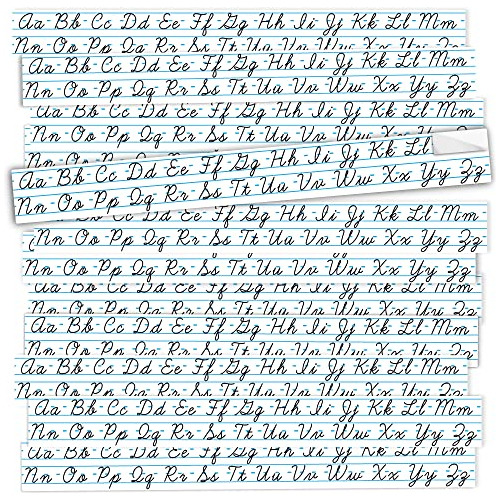 Aa Bb Cc Dd Ee Ff Gg Hh Ii Jj Kk Ll Mm
Nn Oo Pp Qq Rr Ss Tt Uu Vv Ww Xx Yy Zz
Aa Bb Cc Dd Ee Ff Gg Hh Ii Jj Kk Ll Mm
Nn Oo Pp Qq Rr Ss Tt Uu Vv Ww Xx Yy Zz
Aa Bb Cc Dd Ee Ff Gg Hh Ii Jj Kk Ll Mm
Nn Oo Pp Qq Rr Ss Tt Uu Vv Ww Xx Yy Zz
Aa Bb Cc Dd Ee Ff Gg Hh Ii Jj Kk Ll
Nn Oo Pp Qq Rr Ss Tt Uu Vv Ww Xx Yy Zz
Ff Gg Hh Ii Jj Kk Ll Mm
Oo Pp Qq Rr Ss Tt Uu Vv Ww Xx Yy Zz
Nn Oo Pp Qq Rr Ss Tt Uu Vv Ww Xx Yy Zz
Aa Bb Cc Dd Ee Ff Gg Hh Ii Jj Kk Ll Mm
Nn Oo Pp Qq Rr Ss Tt Uu Vv Ww Xx Yy Zz
Aa Bb Cc Dd Ee Ff Gg Hh Ii Jj Kk Ll Mm
Nn Oo Pp Qq Rr Ss Tt Uu Vv Ww Xx Yy Zz
Aa Bb Cc Dd Ee Ff Gg Hh Ii Jj Kk Ll Mm
Nn Oo Pp Qq Rr Ss Tt Uu Vv Ww Xx Yy Zz
Aa Bb Cc Dd Ee Ff Gg Hh Ii Jj Kk Ll Mm
Nn Oo Pp Qq Rr Ss Tt Uu Vv Ww Xx Yy Zz
Aa Bb Cc Dd Ee Ff Gg Hh Ii Jj Kk Ll Mm
Nn Oo Pp Qq Rr Ss Tt Uu Vv Ww Xx Yy Zz